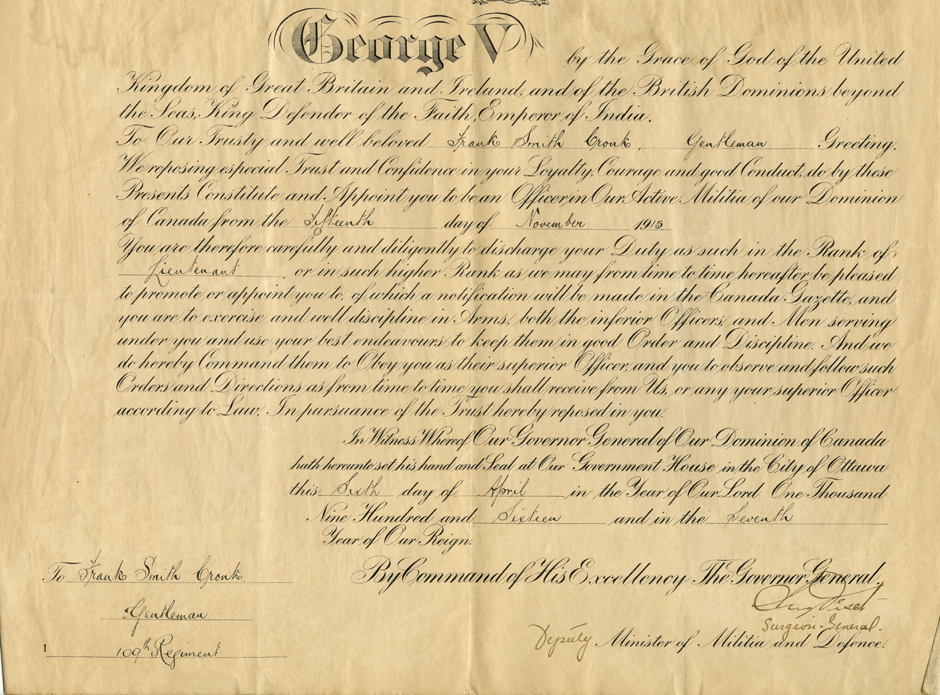 George V by the Grace of God of the United
Kingdom of Great Britain and Ireland, and of the British Dominions beyond
the Seas, King Defender of the Faith, Emperor of India.
To Our Trusty and well beloved Frank Smith Cronk, Gentleman Greeting.
We reposing especial Trust and Confidence in your Loyalty, Courage and good Conduct, do by these
Presents Constitute and Appoint you to be an Officer in Our Active Militia of our Dominion
of Canada from the Fifteenth day of November 1915
You are therefore carefully and diligently to discharge your Duty as such in the Rank of
Lieutenant or in such higher Rank as we may from time to time hereafter be pleased
to promote or appoint you to, of which a notification will be made in the Canada Gazette, and
you are to exercise and well discipline in Arms, both the inferior Officers and Men serving
under you and use your best endeavours to keep them in good Order and Discipline. And we
do hereby Command them to Obey you as their superior Officer, and you to observe and follow such
Orders and Directions as from time to time you shall receive from Us, or any your superior Officer
according to Law, In pursuance of the Trust hereby reposed in you.
In Witness Whereof Our Governor General of Our Dominion of Canada
hath hereunto set his hand and Seal at Our Government House in the City of Ottawa
this Sixth day of April in the Year of Our Lord One Thousand
Nine Hundred and Sixteen and in the Seventh
Year of Our Reign.
By Command of His Excellency The Governor General,
Surgeon-General.
Deputy Minister of Militia and Defence.
To Frank Smith Cronk
Gentleman
109th Regiment